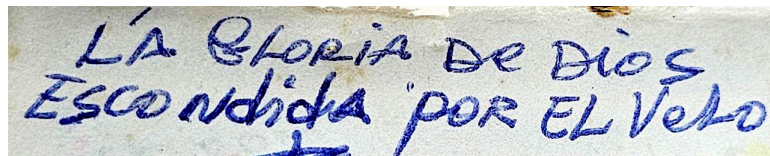 LA GLORIA DE DIOS
ESCONDIDA POR EL VELO